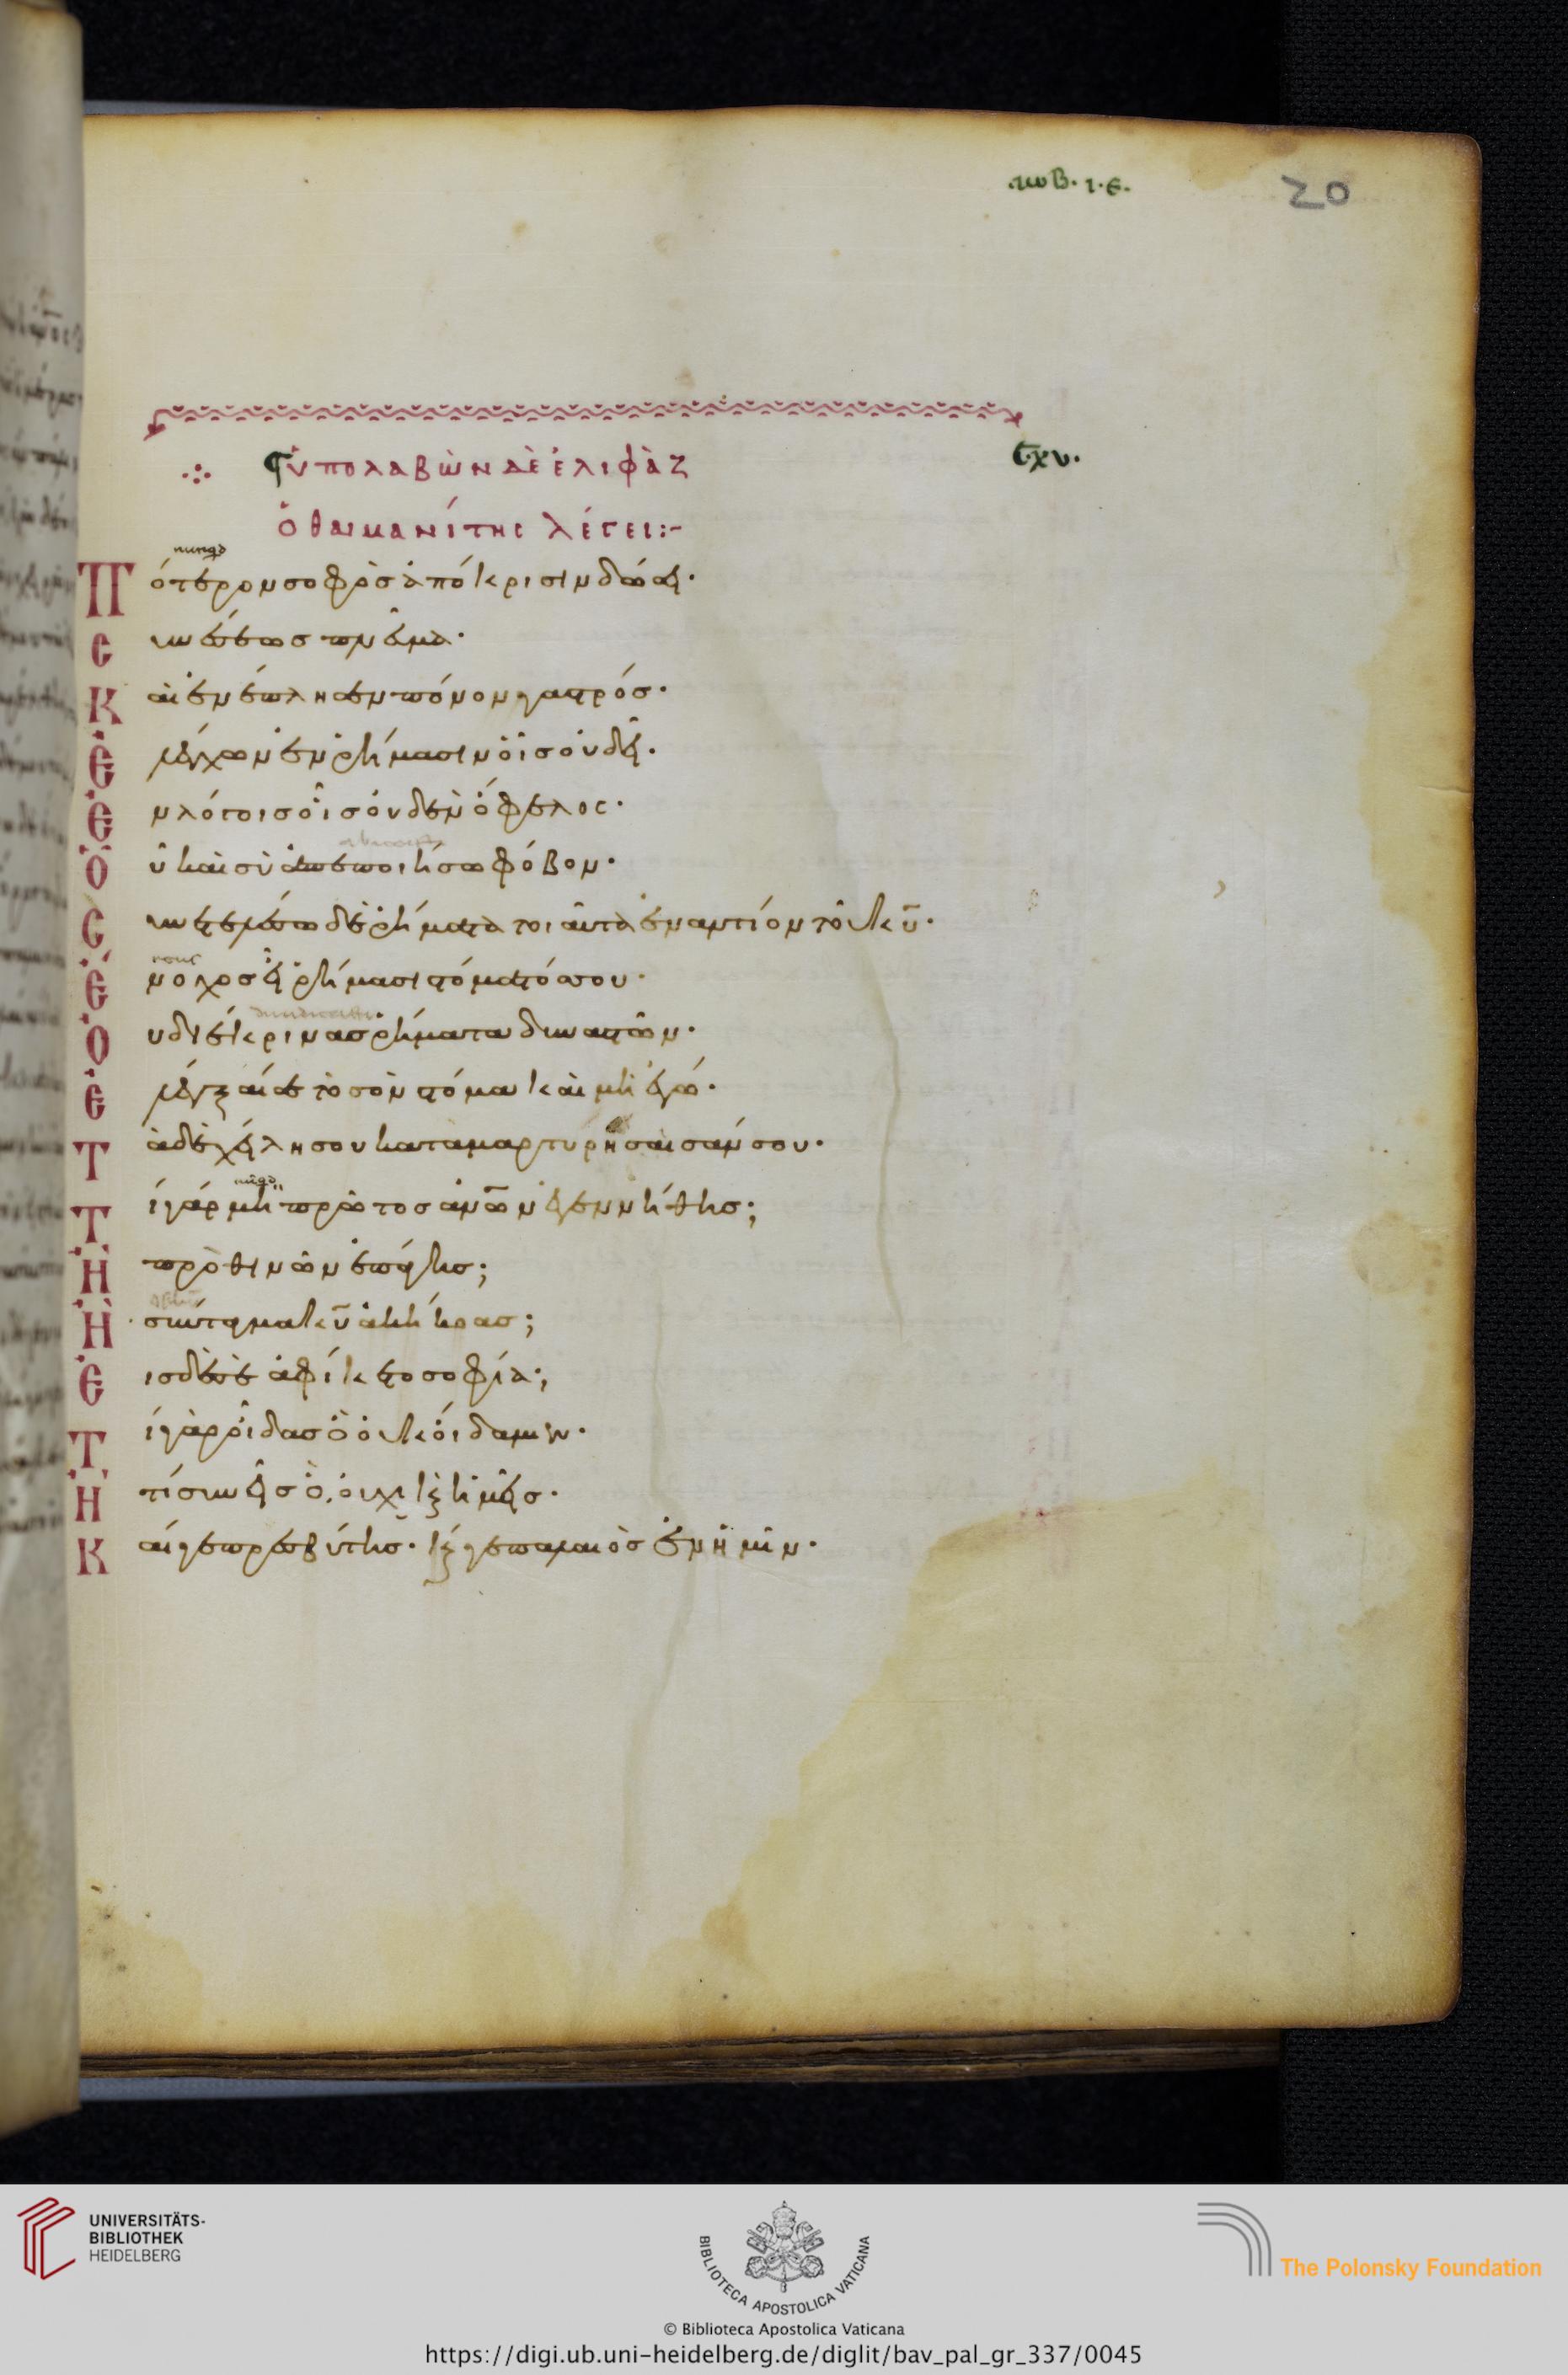 ιωβ. ι.ε.
20
ὑπολαβὼν δὲ ἐλιφὰζ
ὁ θαιμανίτης λέγει:-
numqd
Πότερον σοφὸς ἀπόκρισιν δώσει·
Συνέσεως πνεῦμα·
Καὶ ἐνέπλησεν πόνον γαστρός·
Ἐλέγχων ἐν ῥήμασιν οἷς οὐ δεῖ·
Ἐν λόγοις οἷς οὐδὲν ὄφελος·
Οὐ καὶ σὺ ἀπεποιήσω φόβον·
Συνετελέσω δὲ ῥήματα τοιαῦτα ἐναντίον τοῦ κυ·
Ἔνοχος εἶ ῥήμασι στόματός σου·
Οὐ διέκρινας ῥήματα δυναστῶν·
Ἐλέγξαι σε τὸ σὸν στόμα καὶ μὴ ἐγώ·
Τὰ δὲ χείλη σου καταμαρτυρησαισάν σου·
Τί γάρ μὴ πρῶτος ἀνων ἐγεννήθης;
Ἢ πρὸ θινῶν ἐπάγης;
Ἢ σύνταγμα κυ ἀκήκοας;
Εἰς δὲ σὲ ἀφίκετο σοφία;
Τί γὰρ οἶδας ὃ οὐκ οἴδαμεν·
Ἢ τί συνεῖς ὃ οὐχὶ κ ἡμεῖς·
Καί γε πρεσβύτης· κ γε παλαιὸς ἐν ἡμῖν·
UNIVERSITÄTS-
BIBLIOTHEK
HEIDELBERG
BIBLIOTECA APOSTOLICA VATICANA
© Biblioteca Apostolica Vaticana
The Polonsky Foundation
https://digi.ub.uni-heidelberg.de/diglit/bav_pal_gr_337/0045